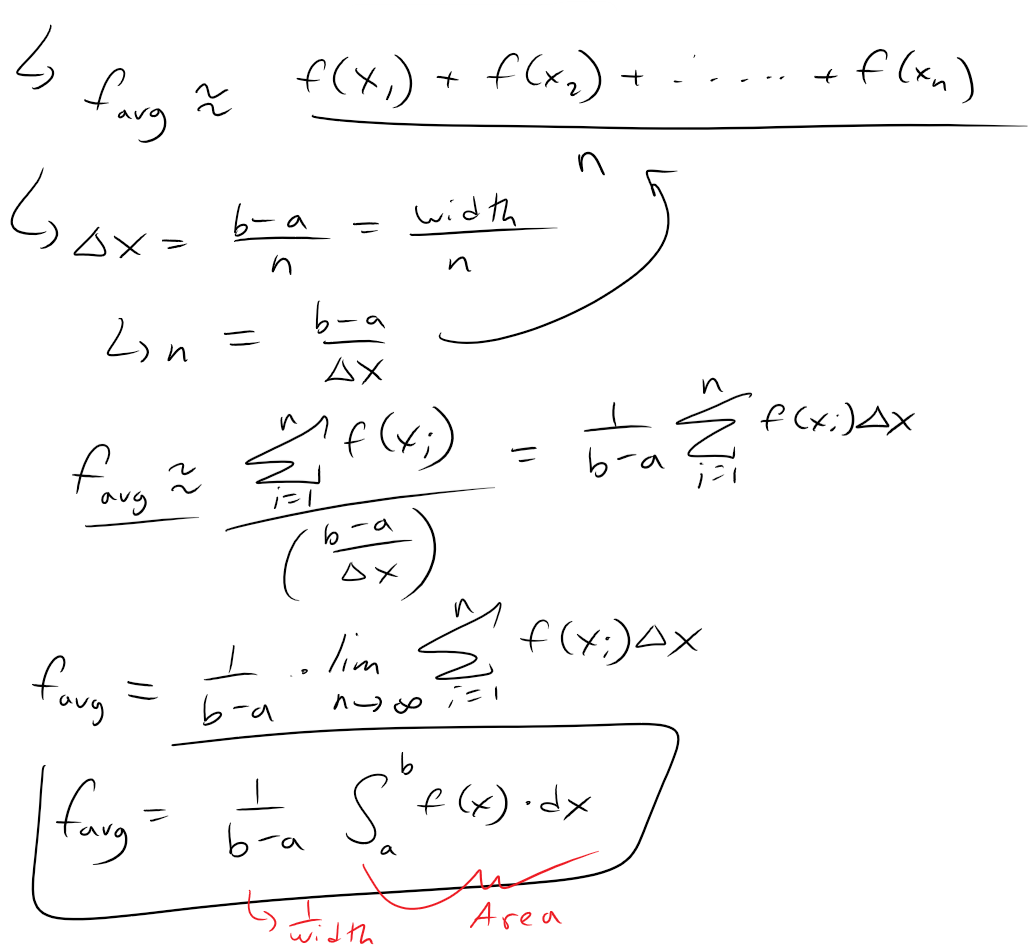 ↳ f_avg ≈ (f(x₁) + f(x₂) + ...... + f(xₙ)) / n
↳ Δx = (b-a)/n = width/n
↳ n = (b-a)/Δx
f_avg ≈ (∑_{i=1}^{n} f(xᵢ)) / ((b-a)/Δx) = 1/(b-a) ∑_{i=1}^{n} f(xᵢ)Δx
f_avg = 1/(b-a) · lim_{n→∞} ∑_{i=1}^{n} f(xᵢ)Δx
f_avg = 1/(b-a) ∫_a^b f(x)·dx
↳ 1/width Area